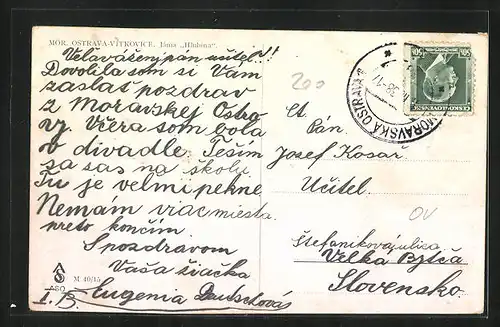 MOR. OSTRAVA-VÍTKOVICE. Jáma „Hlubina“.
Velavážený pán učitel!!
Dovolila som si Vám
zaslat pozdrav
z Moravskej Ostra-
vy. Včera som bola
v divadle. Teším
sa sas na školu.
Tu je velmi pekne
Nemám viac miesta
preto končím
S pozdravom
Vaša žiačka
Eugenia
I. B.
M 40/15
200
Ct. Pán.
Josef Kosar
Učitel.
OV
Štefanikova julica
Velka Bytča
Slovensko.
MORAVSKÁ OSTRAVA
50h
ČESKOSLOVENSKO